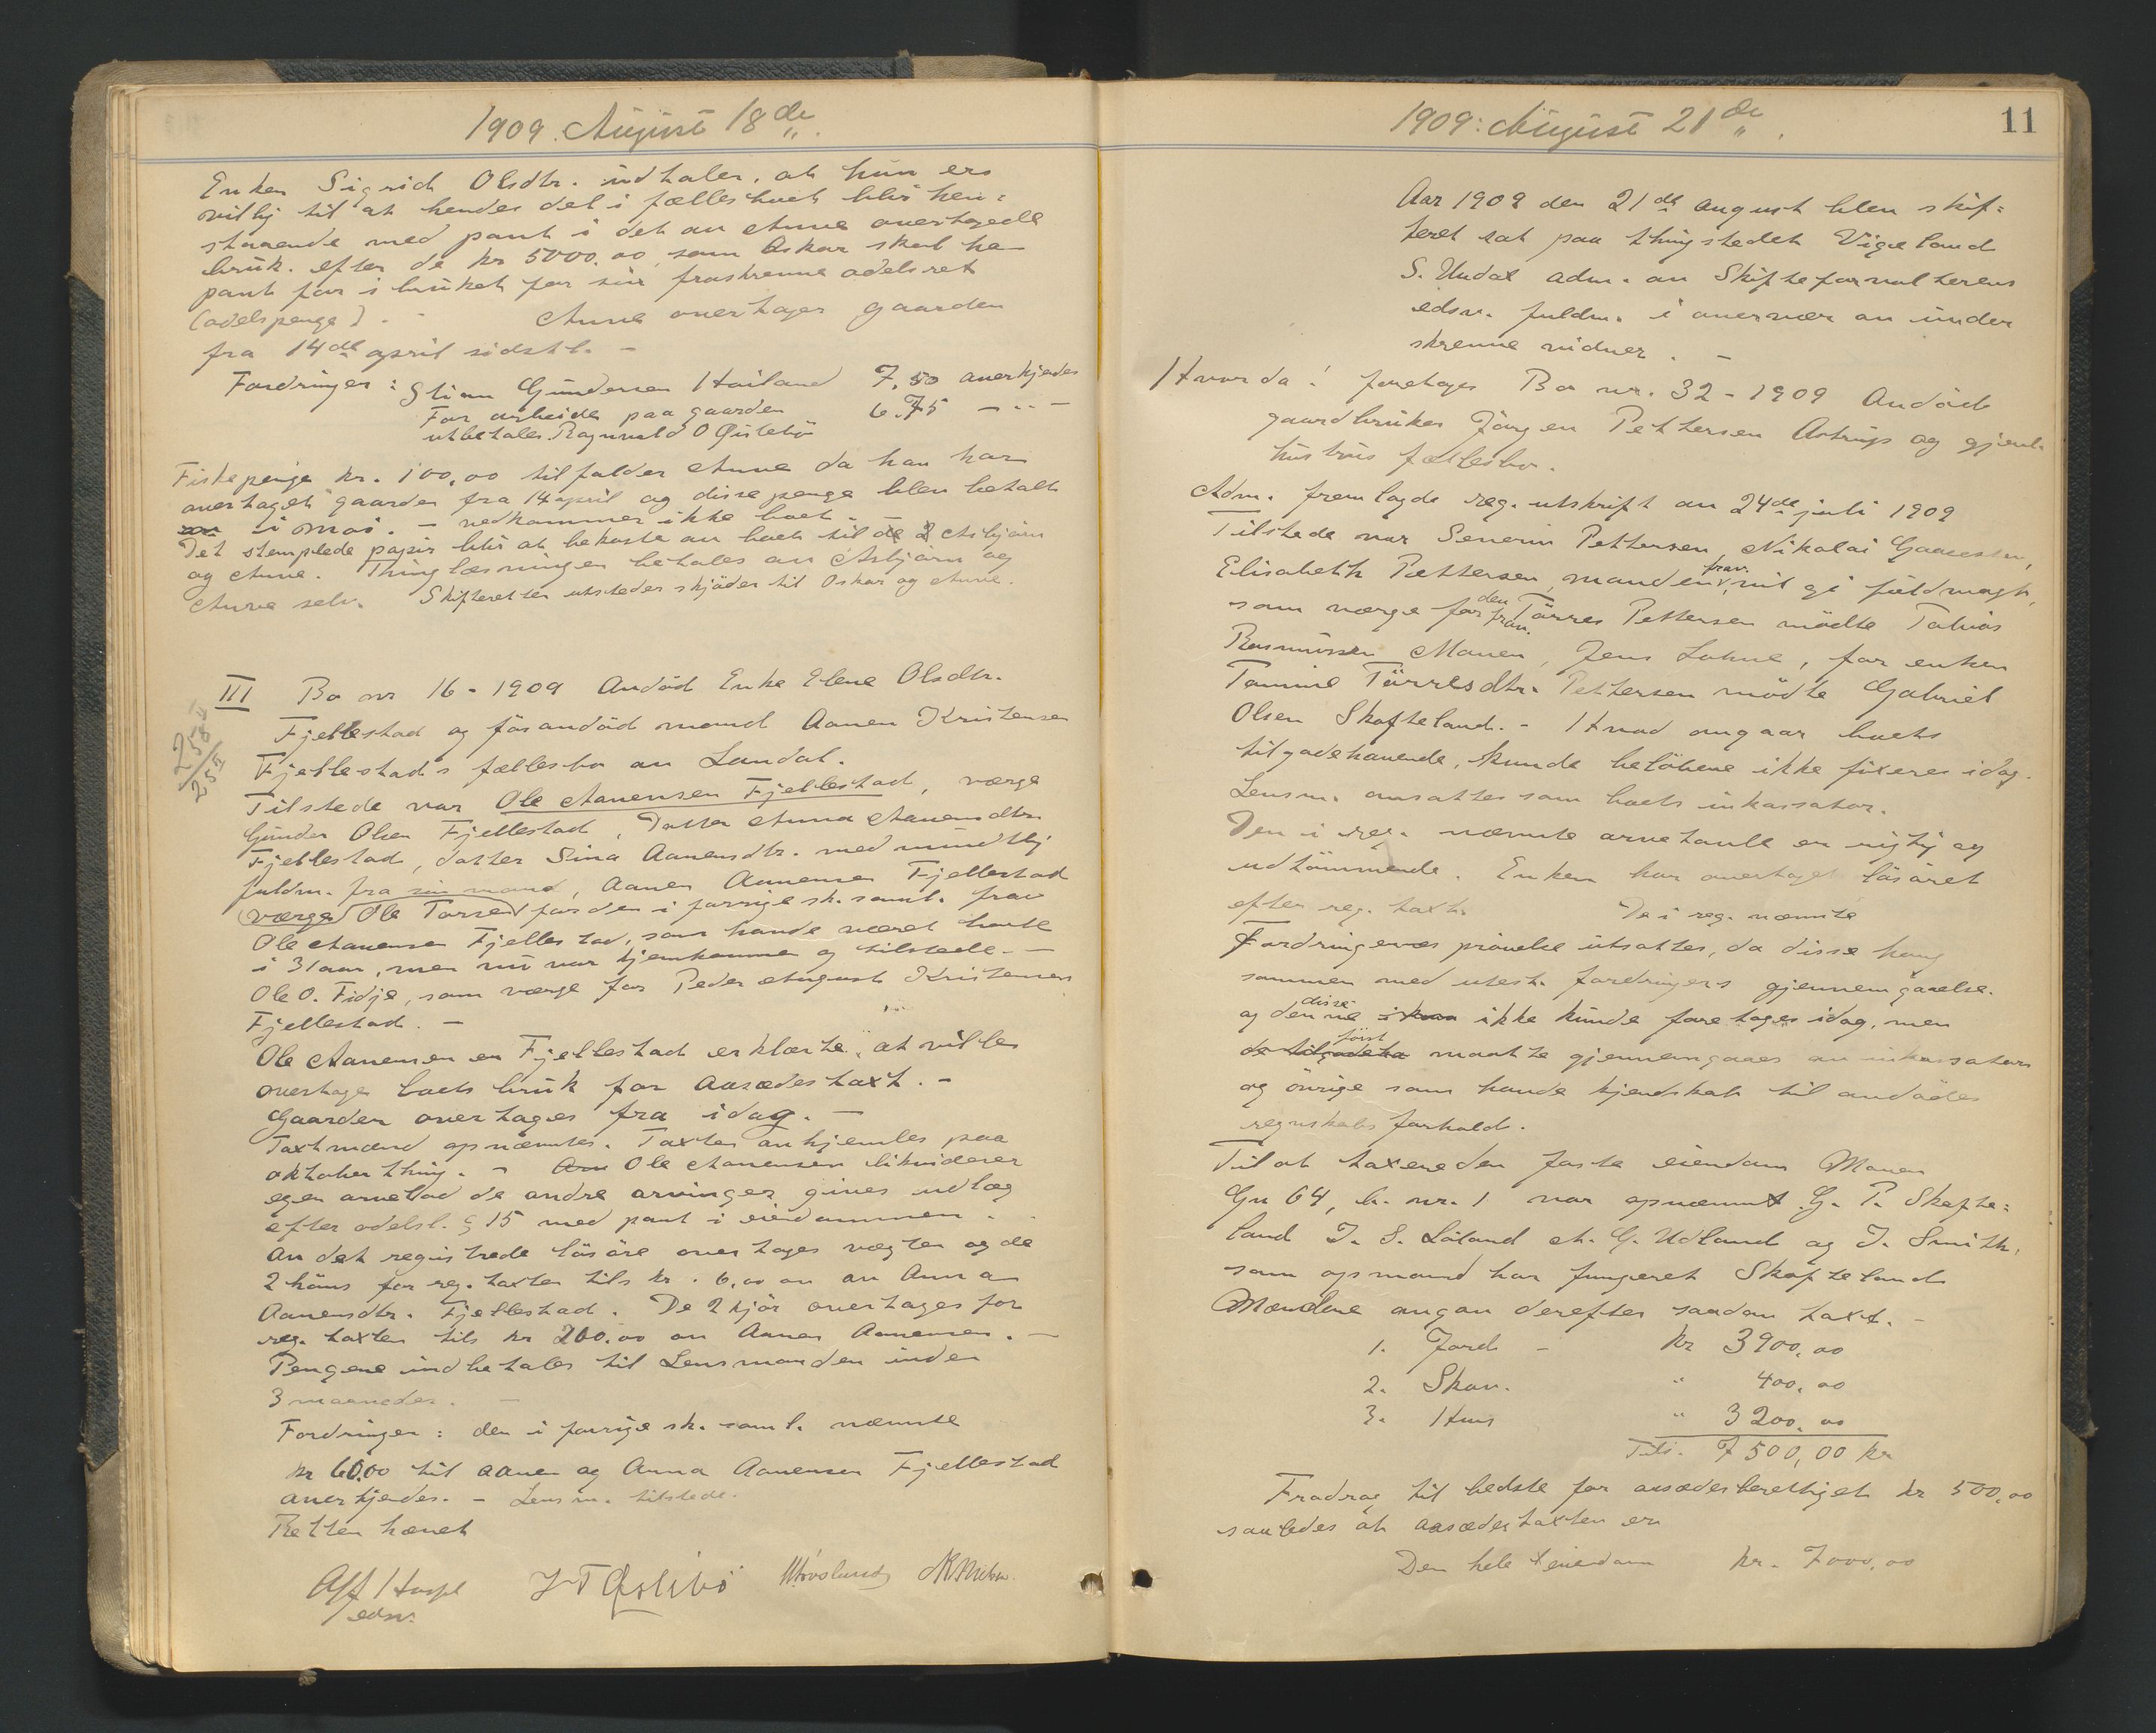 1909. August 18de
Enken Sigrid Olsdtr. udtaler, at hun ers
villig til at hendes del i fællesboet blir hen=
staaende med pant i det av Anne overtagede
bruk. efter de kr 5000.00 som Oskar skal ha
pant for i bruket for sin fraskrevne odelsret
(odelspenge). - Anne overtager gaarden
fra 14de april sidstl. -
Fordringer: Stian Gundersen Høiland 7,50 anerkjedes
For arbeide paa gaarden 6.75 - " -
utbetales Ragnvald O Øislebö
Fiskepenge kr. 100,00 tilfalder Anne da han har
overtaget gaarden fra 14 april og disse penge blev betalt
i mai. - vedkommer ikke boet. -
Det stemplede papir blir at bekoste av boet til de 2 Asbjörn
og Anne. Thinglæsningen betales av Asbjörn og
Anne selv. Skifteretten utsteder skjöder til Oskar og Anne.
III Bo nr 16 - 1909 Avdöd Enke Elene Olsdtr.
Fjellestad og föravdöd mand Aanen Kristensen
258 II
25 II
Fjellestads fællesbo av Laudal.
Tilstede var Ole Aanensen Fjellestad, værge
Gunder Olsen Fjellestad, Datter Anna Aanensdtr
Fjellestad, datter Sina Aanensdtr. med mundtlig
fuldm. fra sin mand, Aanen Aanensen Fjellestad
(værge Ole Torsen) for den i forrige sk. saml. frav
Ole Aanensen Fjellestad, som havde været borte
i 31 aar, men nu var hjemkommen og tilstede. -
Ole O. Fidje, som værge for Peder August Kristensen
Fjellestad. -
Ole Aanensen Fjellestad erklærte, at ville
overtage boets bruk for aasædestaxt. -
Gaarden overtages fra idag. -
Taxtmænd opnævntes. Taxten avhjemles paa
oktoberthing. - Ole Aanensen likviderer
egen arvelod de andre arvinger gives udlæg
efter odelsl. § 15 med pant i eiendommen. -
Av det registrede lösöre overtages vægten og de
2 höns for reg. taxten tils kr. 6,00 av Anna
Aanensdtr. Fjellestad. De 2 kjör overtages for
reg. taxten tils kr 200.00 av Aanen Aanensen. -
Pengene indbetales til Lensmanden inden
3 maaneder. -
Fordringer: den i forrige sk. saml. nævnte
kr 60.00 til Aanen og Anna Aanensen Fjellestad
anerkjendes. - Lensm. tilstede.
Retten hævet
edsv.
1909: August 21de
11
Aar 1909 den 21de august blev skif=
teret sat paa thingstedet Vigeland
S. Undal adm. av Skifteforvalterens
edsv. fuldm. i overvær av under
skrevne vidner. -
Hvorda: foretoges Bo nr. 32 - 1909 Avdöde
gaardbruker Jörgen Pettersen Astrup og gjenl.
hustrus fællesbo.
Adm. fremlagde reg. utskrift av 24de juli 1909
Tilstede var Severin Pettersen, Nikolai
Elisabeth Pettersen, manden frav., vil gi fuldmagt,
som værge for den frav. Törres Pettersen mödte Tobias
Rasmussen Monen, Jens Lohne, for enken
Tomine Törresdtr. Pettersen mödte Gabriel
Olsen Skofteland. - Hvad angaar boets
tilgodehavende, kunde belöbene ikke fixeres idag.
Lensm. ansattes som boets inkassator.
Den i reg. nævnte arvetavle er rigtig og
udtömmende. Enken har overtaget lösöret
efter reg. taxt. De i reg. nævnte
Fordringeres prövelse utsattes, da disse hang
sammen med utest. fordringers gjennemgaaelse.
og disse ikke kunde foretages idag, men
först maatte gjennemgaaes av inkassator
og övrige som havde kjendskab til avdödes
regnskabs forhold.
Til at taxere den faste eiendom Monen
Gn 64, b. nr. 1 var opnævnt G. P. Skofte=
land J. S. Löland A. G. Udland og J. Smith,
som opmand har fungeret Skofteland
Mændene avgav derefter saadan taxt. -
1. Jord - kr 3900,00
2. Skov. " 400,00
3. Hus " 3200,00
Tils. 7500,00 kr
Fradrag til bedste for aasædesberettiget kr 500,00
saaledes at aasædestaxten er
Den hele eiendom kr. 7000,00